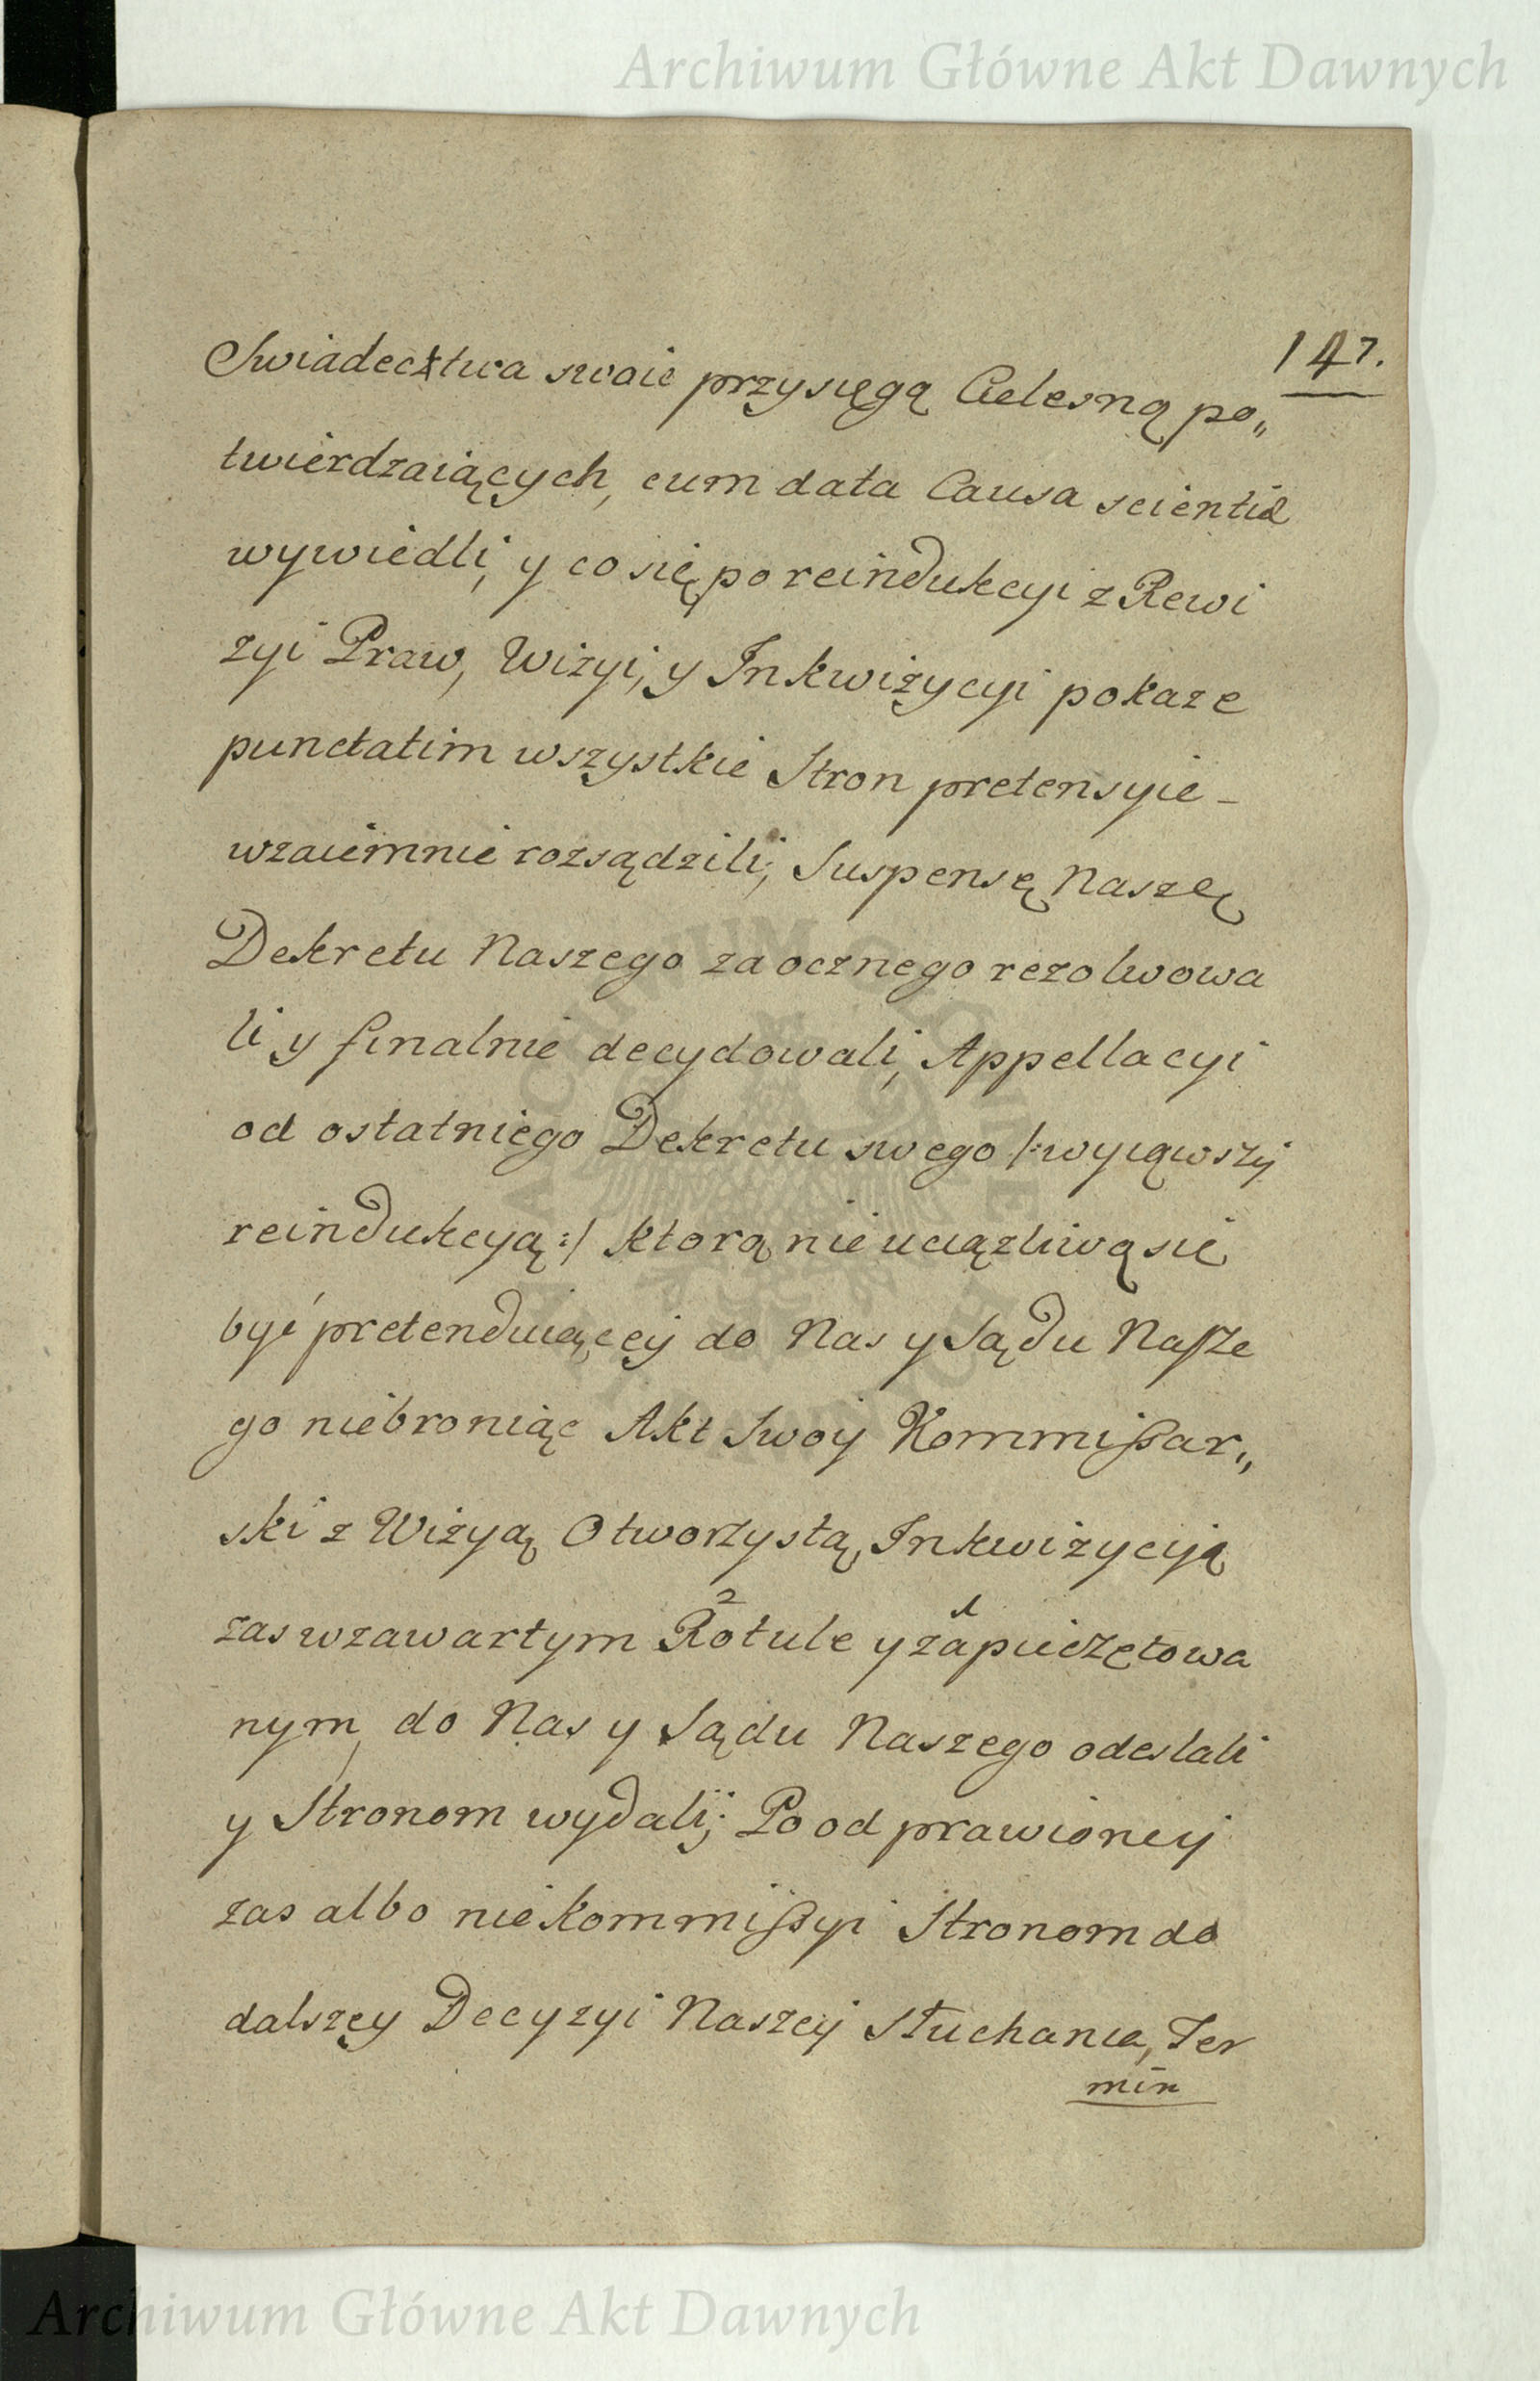 Archiwum Główne Akt Dawnych
147.
Swiadectwa swoie przysięgą Cielesną po„
twierdzaiących, cum data Causa scientiæ
wywiedli, y co się po reindukcyi z Rewi
zyi Praw, Wizyi, y Inkwizycyi pokaze
punctatim wszystkie Stron pretensyie –
wzaiemnie rozsądzili, Suspensę Naszę
Dekretu Naszego zaocznego rezolwowa
li y finalnie decydowali, Appellacyi
od ostatniego Dekretu swego /:wyiąwszy
reindukcyą:/ ktorą nie uciązliwą się
być pretenduiącey do Nas y Sądu Nasze
go niebroniąc Akt Swoy Kommissar„
ski z Wizyą Otworzystą, Inkwizycyą
zas w zawartym Rotule y zapieczętowa
nym, do Nas y Sądu Naszego odeslali
y Stronom wydali; Po odprawioney
zas albo nie kommissyi Stronom do
dalszey Decyzyi Naszey słuchania, Ter
min
Archiwum Główne Akt Dawnych